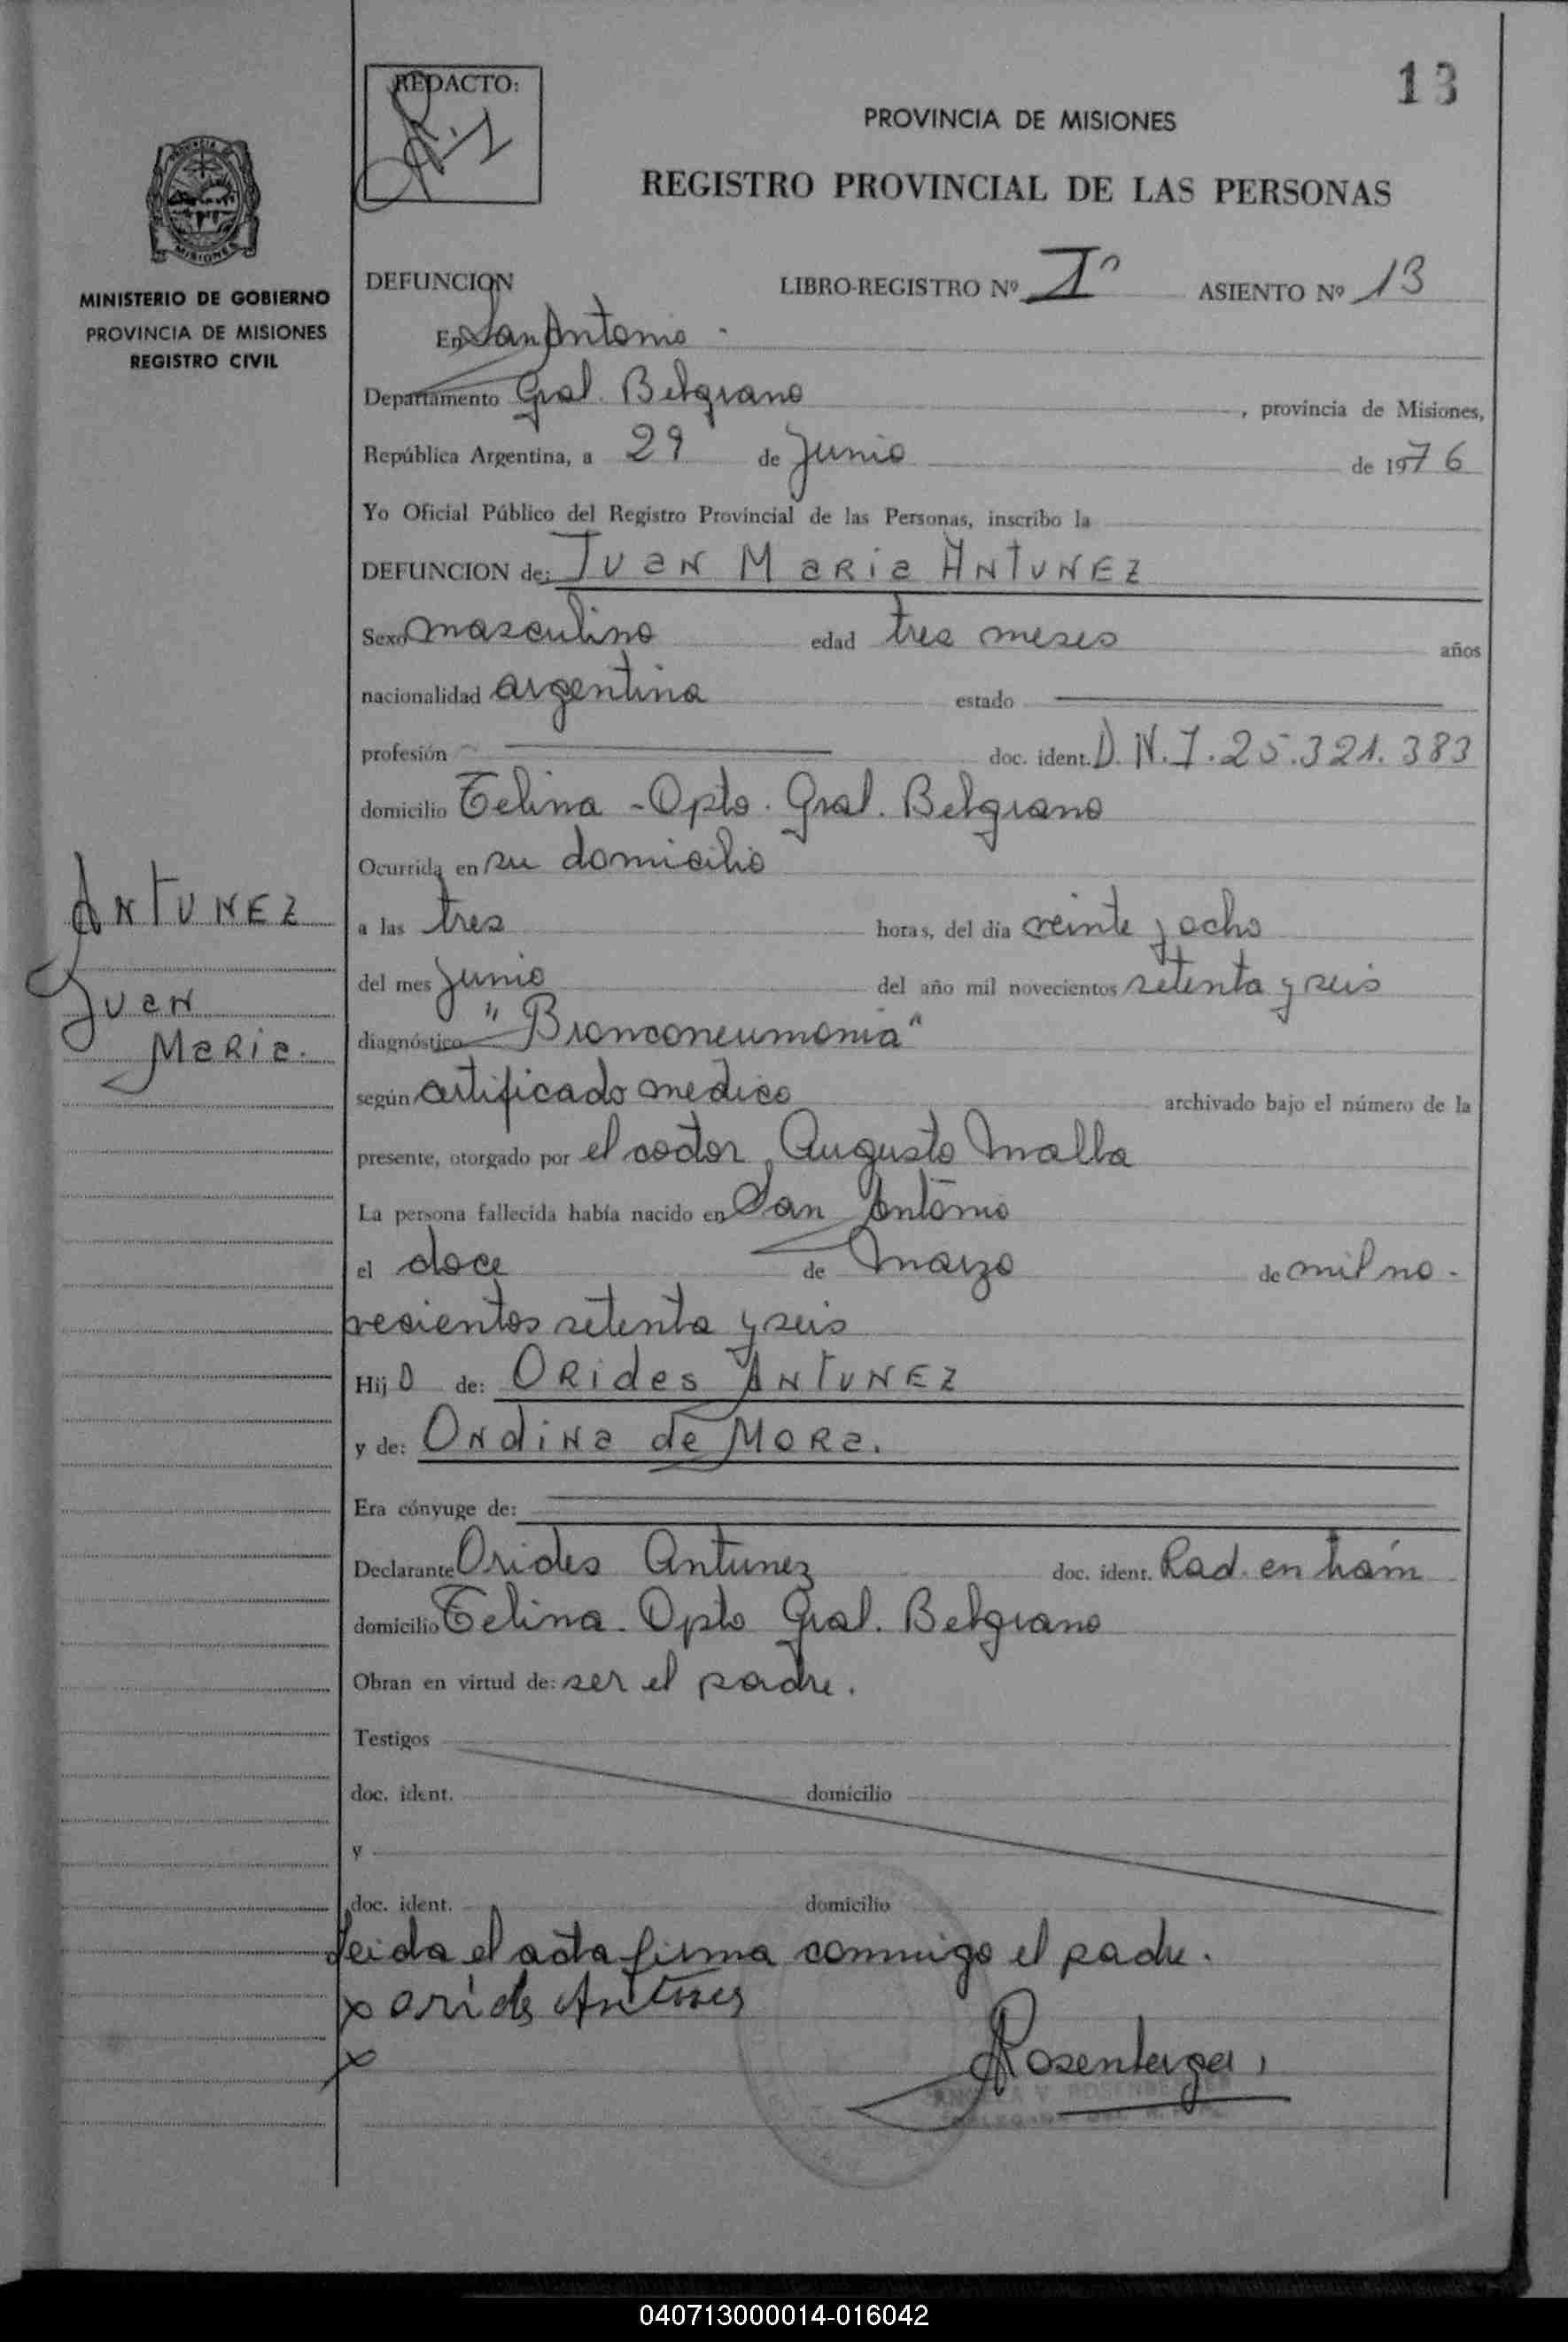 13
REDACTO:
PROVINCIA DE MISIONES
REGISTRO PROVINCIAL DE LAS PERSONAS
MINISTERIO DE GOBIERNO
PROVINCIA DE MISIONES
REGISTRO CIVIL
DEFUNCION LIBRO-REGISTRO Nº Iº ASIENTO Nº 13
En San Antonio -
Departamento Gral. Belgrano, provincia de Misiones,
República Argentina, a 29 de Junio de 1976
Yo Oficial Público del Registro Provincial de las Personas, inscribo la
DEFUNCION de: Juan Maria Antunez
Sexo masculino edad tres meses años
nacionalidad argentina estado
profesión doc. ident. D.N.I. 25.321.383
domicilio Celina - Dpto. Gral. Belgrano
Ocurrida en su domicilio
Antunez
Juan
Maria.
a las tres horas, del día veinte y ocho
del mes Junio del año mil novecientos setenta y seis
diagnóstico "Bronconeumonia"
según certificado medico archivado bajo el número de la
presente, otorgado por el doctor Augusto Malla
La persona fallecida había nacido en San Antonio
el doce de Marzo de mil no-
vecientos setenta y seis
Hijo de: Orides Antunez
y de: Ondina de Mora.
Era cónyuge de:
Declarante Orides Antunez doc. ident. Rad. en trám
domicilio Celina - Dpto Gral. Belgrano
Obran en virtud de: ser el padre.
Testigos
doc. ident. domicilio
y
doc. ident. domicilio
Leida el acta firma conmigo el padre.
x orides Antunes
x Rosenberger
ANGELA V. ROSENBERGER
040713000014-016042